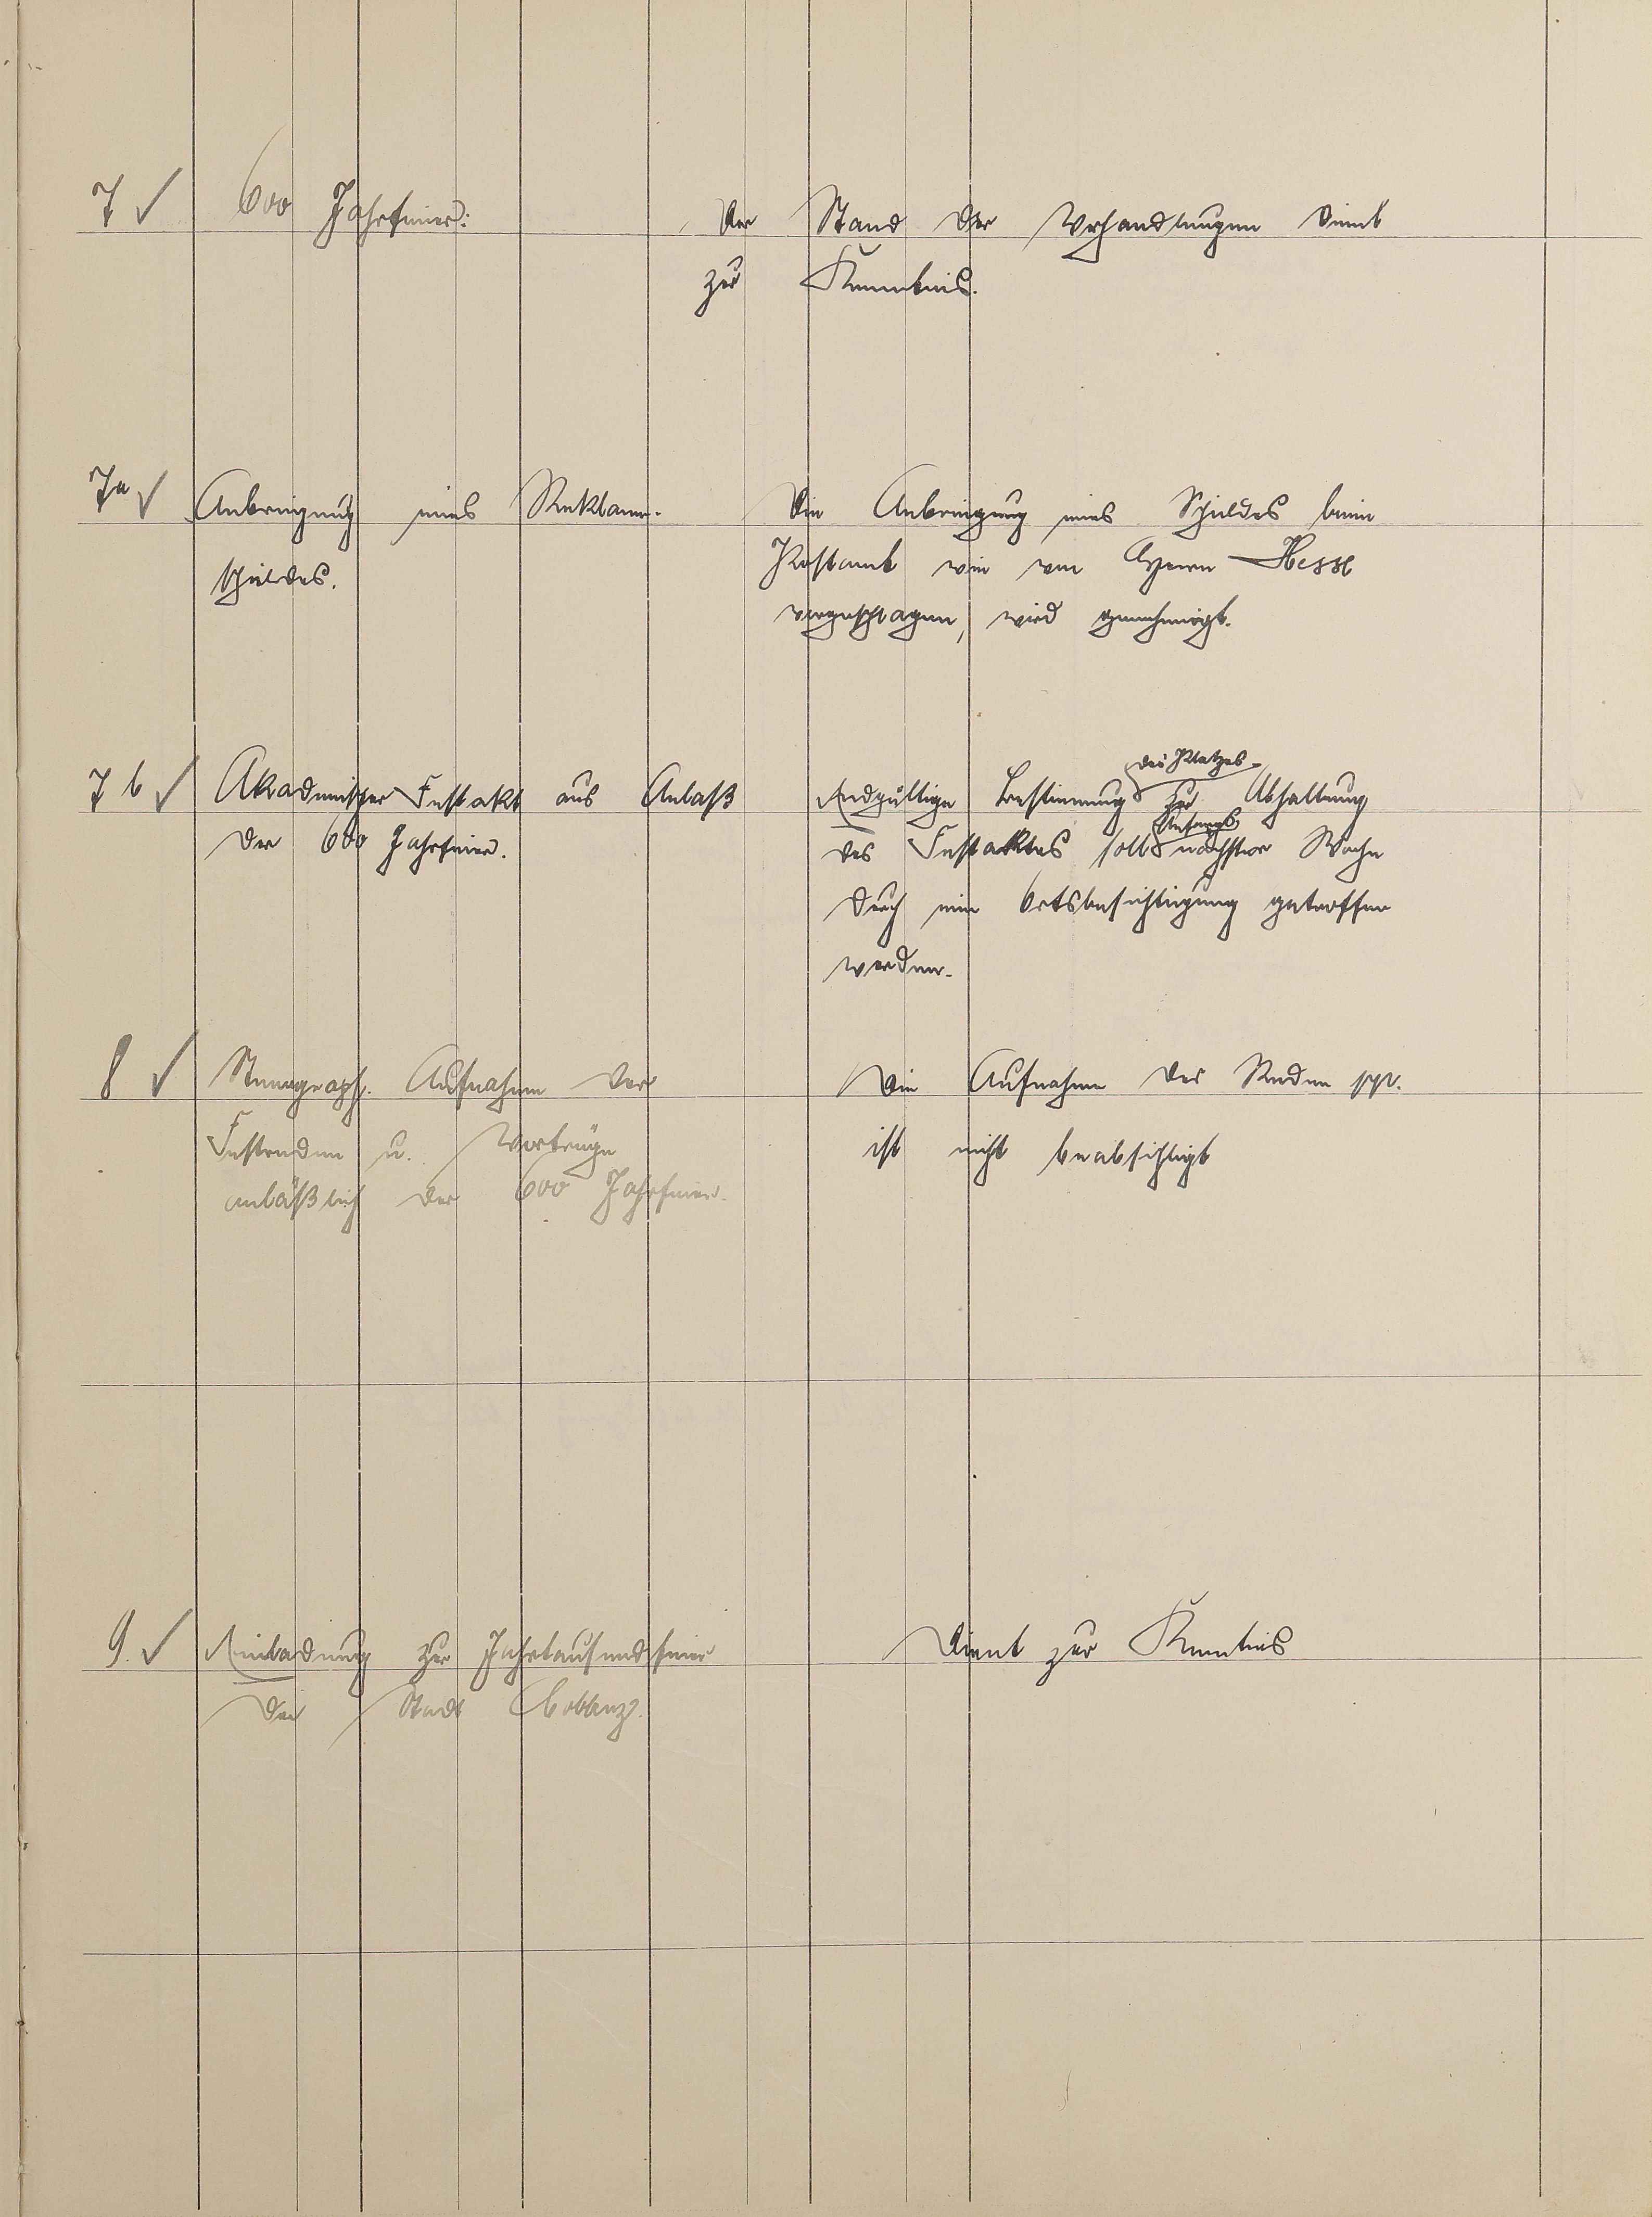 7 ✓ 600 Jahrfeier: Der Stand der Verhandlungen dient
zur Kenntnis.
7a ✓ Anbringung eines Reklame- Die Anbringung eines Schildes beim
schildes. Postamt wie von Herrn Hesse
vorgeschlagen, wird genehmigt.
7b ✓ Akademischer Festakt aus Anlaß Endgültige Bestimmung des Platzes zur Abhaltung
der 600 Jahrfeier. des Festaktes soll Anfangs nächster Woche
durch eine Ortsbesichtigung getroffen
werden.
8 ✓ Stenograph. Aufnahme der Die Aufnahme der Reden pp.
Festreden u. Vorträge ist nicht beabsichtigt
anläßlich der 600 Jahrfeier.
9. ✓ Einladung zur Jahrtausendfeier Dient zur Kenntnis
der Stadt Coblenz.